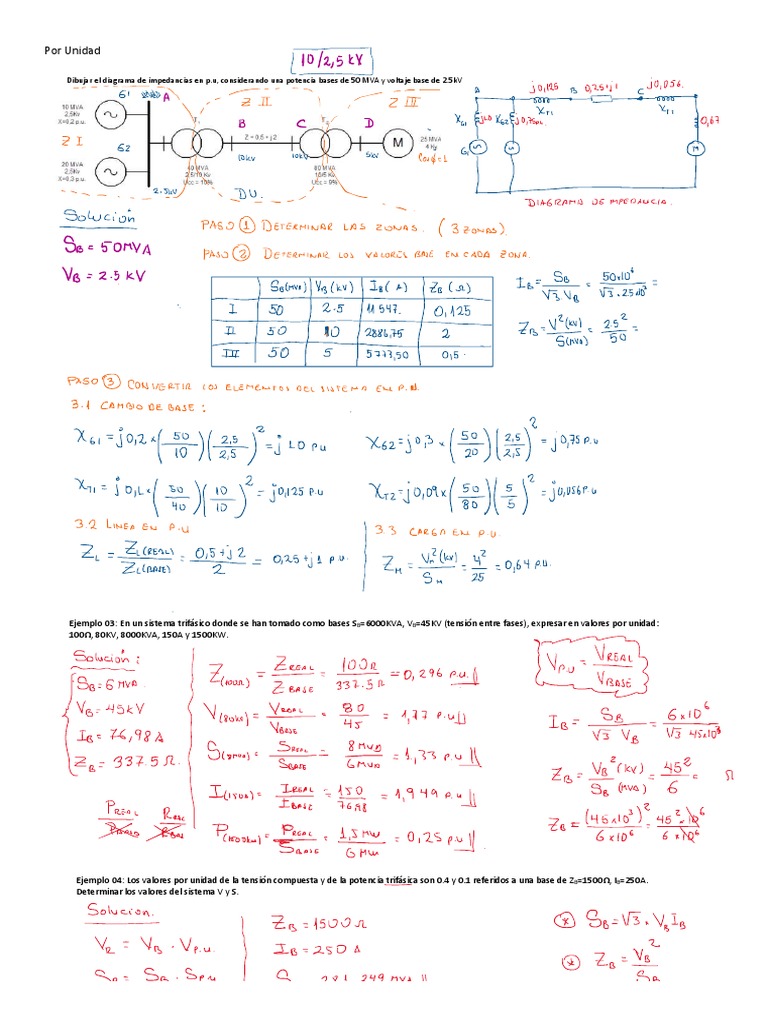 Por Unidad
10/2,5 kV
Dibujar el diagrama de impedancias en p.u, considerando una potencia bases de 50 MVA y voltaje base de 2.5kV
G1
A
Z II
Z III
10 MVA
2,5Kv
X=0,2 p.u.
Z I
G2
20 MVA
2,5Kv
X=0,3 p.u.
2.5kV
T1
40 MVA
2,5/10 Kv
Ucc = 10%
B
Z = 0,5 + j 2
10kV
D.U.
C
10kV
80 MVA
10/5 Kv
Ucc = 9%
D
5kV
M
25 MVA
4 Kj
Cosφ=1
A j0,125 B 0,25+j1 C j0,056.
XT1 XT1
XG1 j1.0 XG2 j0,75pu
0,67
G1 M
DIAGRAMA DE IMPEDANCIA.
Solución
SB = 50MVA
VB = 2.5 kV
PASO 1 DETERMINAR LAS ZONAS. (3 ZONAS).
PASO 2 DETERMINAR LOS VALORES BASE EN CADA ZONA.
SB(MVA) VB(kV) IB(A) ZB(Ω)
I 50 2.5 11 547. 0,125
II 50 10 2886,75 2
III 50 5 5773,50 0,5.
IB = SB/√3 VB = 50x10^6/√3.25x10^3 =
ZB = V²(kV)/S(MVA) = 2.5²/50 =
PASO 3 CONVERTIR LOS ELEMENTOS DEL SISTEMA EN P.U.
3.1 CAMBIO DE BASE:
XG1 = j0,2 x (50/10)(2,5/2,5)² = j 1.0 p.u
XG2 = j0,3 x (50/20)(2,5/2,5)² = j0,75 p.u
XT1 = j0,1 x (50/40)(10/10)² = j0,125 p.u
XT2 = j0,09 x (50/80)(5/5)² = j0,056 p.u
3.2 LINEA EN P.U
3.3 CARGA EN P.U.
ZL = ZL(REAL)/ZL(BASE) = 0,5+j2/2 = 0,25+j1 p.u.
ZM = Vn²(kV)/SM = 4²/25 = 0,64 p.u.
Ejemplo 03: En un sistema trifásico donde se han tomado como bases SB=6000KVA, VB=45KV (tensión entre fases), expresar en valores por unidad:
100Ω, 80KV, 8000KVA, 150A y 1500KW.
Solución:
SB = 6 MVA.
VB = 45kV
IB = 76,98A
ZB = 337.5 Ω.
PREAL/PBASE
Z(100Ω) = ZREAL/ZBASE = 100Ω/337.5Ω = 0,296 p.u.
V(80kV) = VREAL/VBASE = 80/45 = 1,77 p.u
S(8MVA) = SREAL/SBASE = 8MVA/6MVA = 1,33 p.u
I(150A) = IREAL/IBASE = 150/76.98 = 1,949 p.u
P(1500kW) = PREAL/SBASE = 1,5MW/6MW = 0,25 p.u.
VP.U = VREAL/VBASE
IB = SB/√3 VB = 6x10^6/√3 45x10³
ZB = VB²(kV)/SB(MVA) = 45²/6 = Ω
ZB = (45x10³)²/6x10^6 = 45²x10^6/6x10^6
Ejemplo 04: Los valores por unidad de la tensión compuesta y de la potencia trifásica son 0.4 y 0.1 referidos a una base de ZB=1500Ω, IB=250A.
Determinar los valores del sistema V y S.
Solucion.
VR = VB . Vp.u.
SR = SB . Sp.u
ZB = 1500Ω
IB = 250 A
SB = √3 . VB IB
ZB = VB²/SB